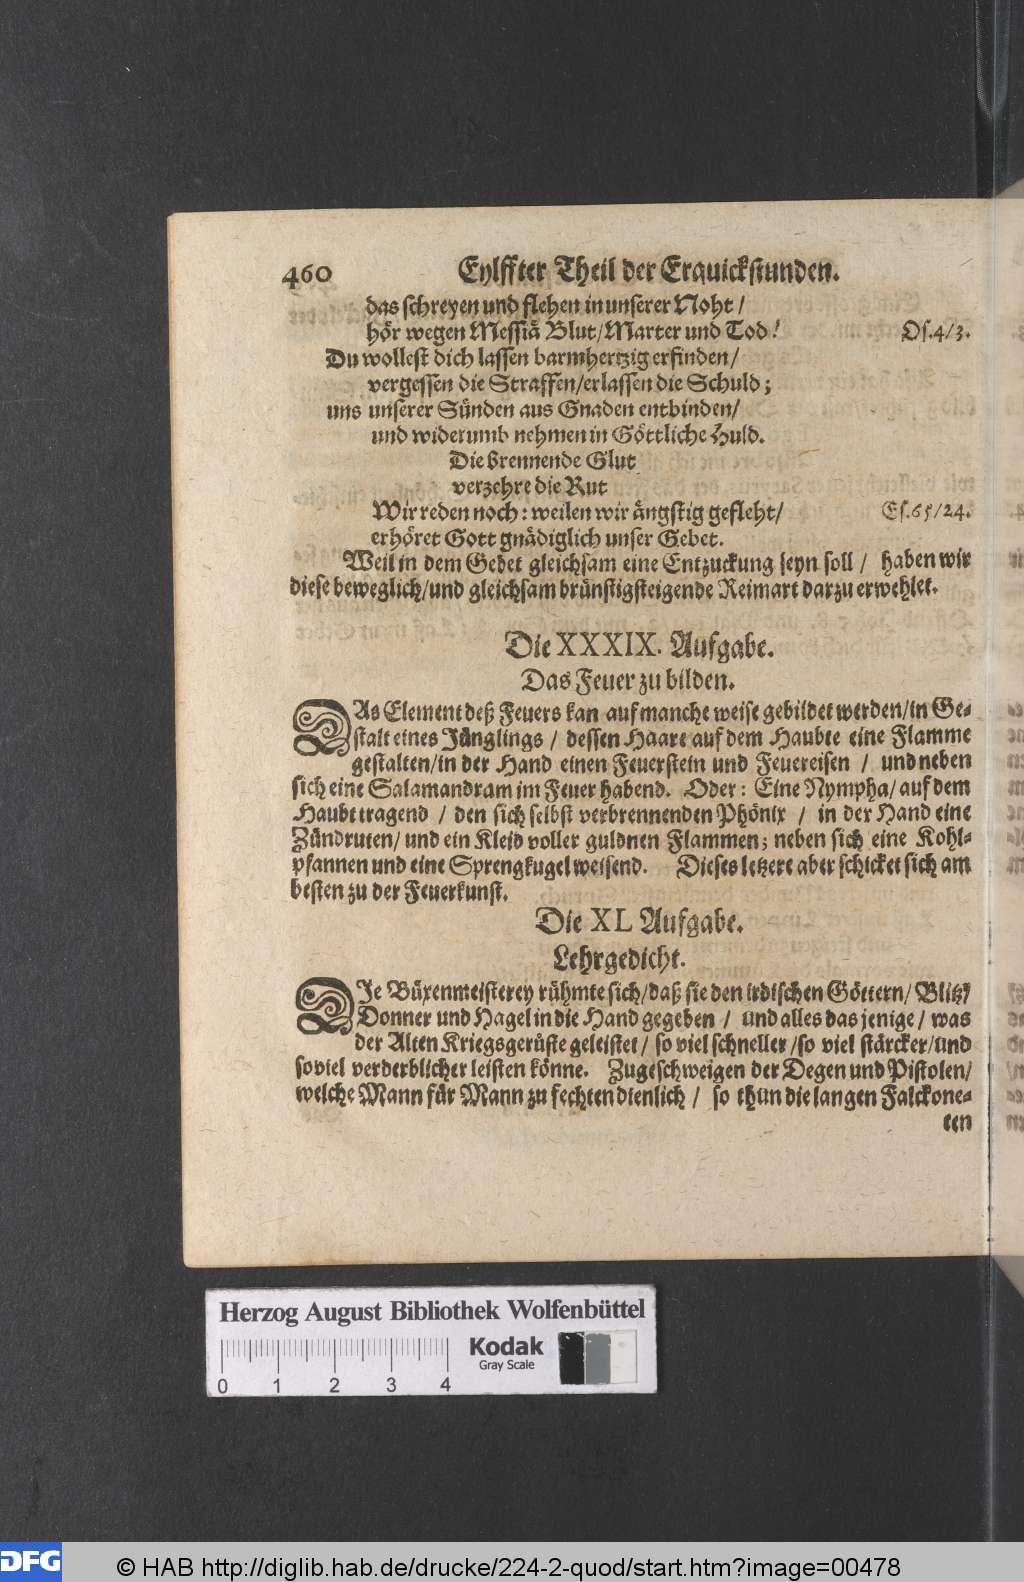 460 Eylffter Theil der Erquickstunden.
das schreyen und flehen in unserer Noht /
hör wegen Messiä Blut/Marter und Tod! Os.4/3.
Du wollest dich lassen barmhertzig erfinden/
vergessen die Straffen/erlassen die Schuld;
uns unserer Sünden aus Gnaden entbinden/
und widerumb nehmen in Göttliche Huld.
Die brennende Glut
verzehre die Rut
Wir reden noch: weilen wir ängstig gefleht/ Es.65/24.
erhöret Gott gnädiglich unser Gebet.
Weil in dem Gebet gleichsam eine Entzuckung seyn soll / haben wir
diese beweglich/und gleichsam brünstigsteigende Reimart darzu erwehlet.
Die XXXIX. Aufgabe.
Das Feuer zu bilden.
DAs Element deß Feuers kan auf manche weise gebildet werden/in Ge-
stalt eines Jünglings / dessen Haare auf dem Haubte eine Flamme
gestalten/in der Hand einen Feuerstein und Feuereisen / und neben
sich eine Salamandram im Feuer habend. Oder: Eine Nympha/ auf dem
Haubt tragend / den sich selbst verbrennenden Phönix / in der Hand eine
Zündruten/ und ein Kleid voller guldnen Flammen; neben sich eine Kohl-
pfannen und eine Sprengkugel weisend. Dieses letzere aber schicket sich am
besten zu der Feuerkunst.
Die XL Aufgabe.
Lehrgedicht.
DIe Büxenmeisterey rühmte sich/daß sie den irdischen Göttern/ Blitz/
Donner und Hagel in die Hand gegeben / und alles das jenige / was
der Alten Kriegsgerüste geleistet / so viel schneller /so viel stärcker/und
so viel verderblicher leisten könne. Zugeschweigen der Degen und Pistolen/
welche Mann für Mann zu fechten dienlich / so thun die langen Falckone-
ten
Herzog August Bibliothek Wolfenbüttel
Kodak
Gray Scale
0 1 2 3 4
DFG © HAB http://diglib.hab.de/drucke/224-2-quod/start.htm?image=00478